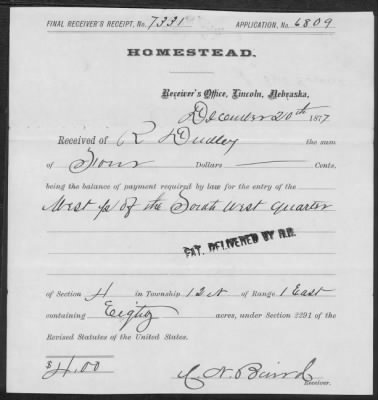 FINAL RECEIVER'S RECEIPT, No. 7331 APPLICATION, No. 6809
HOMESTEAD.
Receiver's Office, Lincoln, Nebraska,
December 20th 1877
Received of R Dudley the sum
of Four Dollars Cents,
being the balance of payment required by law for the entry of the
West ½ of the South West quarter
PAT. DELIVERED BY R.R.
of Section 4 in Township 12 N of Range 1 East
containing Eighty acres, under Section 2291 of the
Revised Statutes of the United States.
$4.00 C. N. Baird
Receiver.